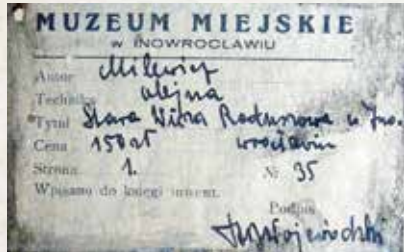 MUZEUM MIEJSKIE
W INOWROCŁAWIU
Autor Milewicz
Technika olejna
Tytuł Stara Wieża Radunowa w Ino-
Cena 150 zł wrocławiu
Strona 1. № 35
Wpisano do księgi inwent.
Podpis